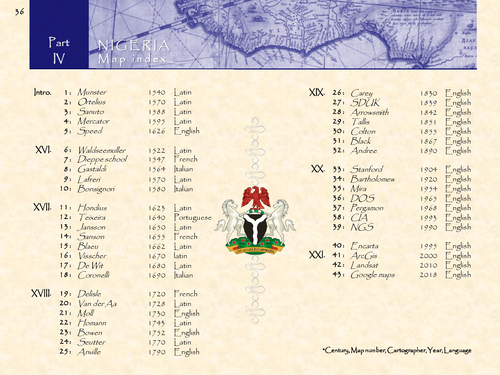 36
Part IV
NIGERIA
Map index
Intro. 1: Munster 1540 Latin
2: Ortelius 1570 Latin
3: Sanuto 1588 Latin
4: Mercator 1595 Latin
5: Speed 1626 English
XVI. 6: Waldseemuller 1522 Latin
7: Dieppe school 1547 French
8: Gastaldi 1564 Italian
9: Lafreri 1570 Latin
10: Bonsignori 1580 Italian
XVII. 11: Hondius 1623 Latin
12: Teixera 1640 Portuguese
13: Jansson 1650 Latin
14: Sanson 1655 French
15: Blaeu 1662 Latin
16: Visscher 1670 latin
17: De Wit 1680 Latin
18: Coronelli 1690 Italian
XVIII. 19: Delisle 1720 French
20: Van der Aa 1728 Latin
21: Moll 1730 English
22: Homann 1743 Latin
23: Bowen 1752 English
24: Seutter 1770 Latin
25: Anville 1790 English
XIX. 26: Carey 1830 English
27: SDUK 1839 English
28: Arrowsmith 1842 English
29: Tallis 1851 English
30: Colton 1855 English
31: Black 1867 English
32: Andree 1890 English
XX. 33: Stanford 1904 English
34: Bartholomew 1920 English
35: Mira 1954 English
36: DOS 1965 English
37: Pergamon 1968 English
38: CIA 1993 English
39: NGS 1990 English
40: Encarta 1995 English
XXI. 41: ArcGis 2000 English
42: Landsat 2010 English
43: Google maps 2018 English
*Century, Map number, Cartographer, Year, Language